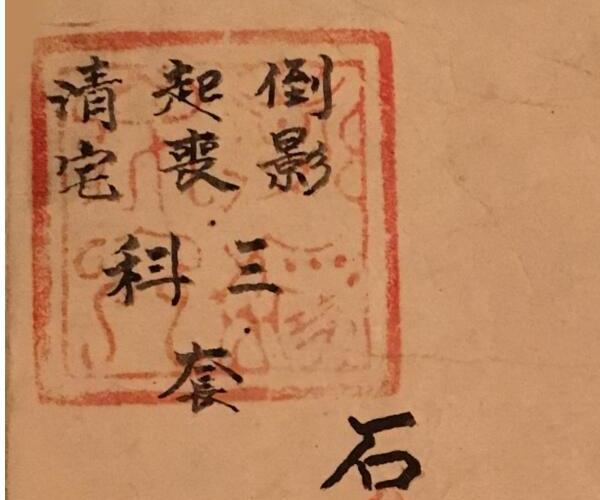 倒影
起喪
清宅
三
科
套
石